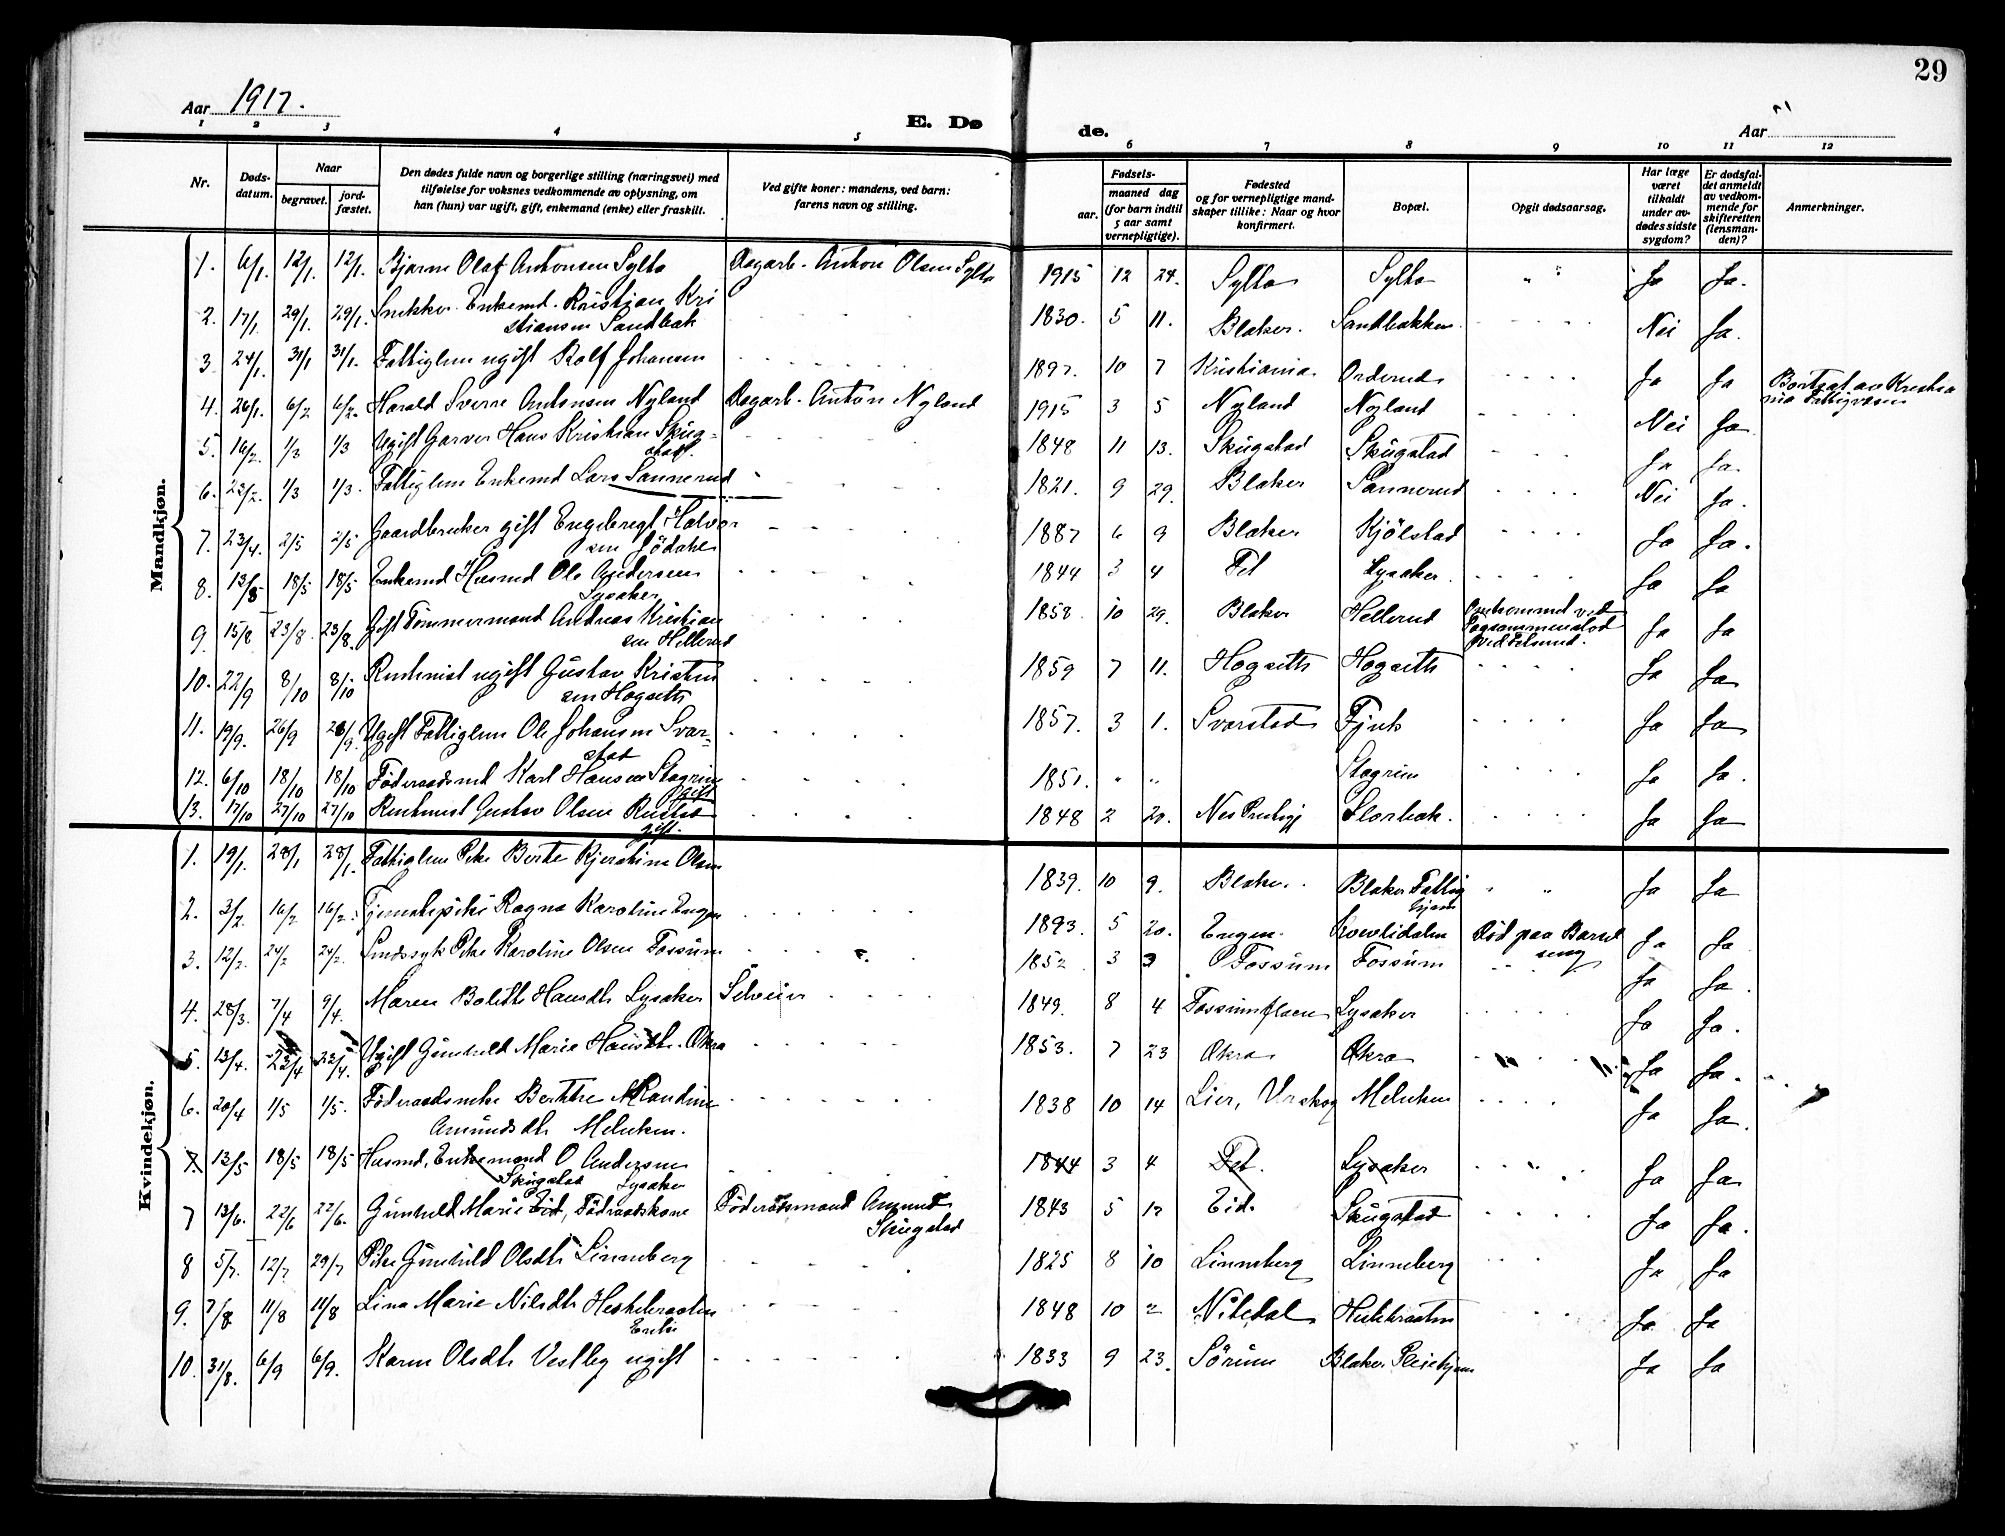 29
Aar 1917.
E. Døde.
Aar "
1 2 3 4 5 6 7 8 9 10 11 12
Nr.
Døds-datum.
Naar
begravet.
jord-fæstet.
Den dødes fulde navn og borgerlige stilling (næringsvei) med
tilføielse for voksnes vedkommende av oplysning, om
han (hun) var ugift, gift, enkemand (enke) eller fraskilt.
Ved gifte koner: mandens, ved barn:
farens navn og stilling.
Fødsels-
aar.
maaned dag
(for barn indtil
5 aar samt
vernepligtige).
Fødested
og for vernepligtige mand-
skaper tillike: Naar og hvor
konfirmert.
Bopæl.
Opgit dødsaarsag.
Har læge
været
tilkaldt
under av-
dødes sidste
sygdom?
Er dødsfal-
det anmeldt
av vedkom-
mende for
skifteretten
(lensman-
den)?
Anmerkninger.
Mandkjøn.
1. 6/1. 12/1. 12/1. Bjarne Olaf Antonsen Sylta Dagarb. Anton Olsen Sylta 1915 12 24. Sylta Sylta " " Ja Ja.
2. 17/1. 29/1. 29/1. Snekker. Enkemd. Kristian Kri
stiansen Sandbak 1830. 5 11. Blaker. Sandbakken Nei Ja.
3. 24/1. 31/1 31/1. Fattiglem ugift Rolf Johansen 1897. 10 7 Kristiania Orderud Ja Ja Bortsat av Kristia
nia Fattigvæsen
4. 26/1. 6/2 6/2. Harald Sverre Antonsen Nyland Dagarb. Anton Nyland 1915 3 5 Nyland Nyland Nei Ja
5. 16/2. 1/3 1/3 Ugift Garver Hans Kristian Skug-
stad. 1848 11 13. Skugstad Skugstad Ja Ja.
6. 23/2. 1/3 1/3. Fattiglem Enkemd Lars Sannerud 1821. 9 29. Blaker Sannerud Nei Ja.
7. 23/4. 2/5 2/5 Gaardbruker gift Engebregt Halvor
sen Jødahl 1887 6 9 Blaker Kjölstad Ja Ja.
8. 13/5 18/5 18/5 Enkemd Husmd Ole Andersen
Lysaker 1844 3 4 Fet Lysaker. Ja Ja
9. 15/8 23/8. 23/8. Gift Tömmermand Andreas Kristian
sen Hellerud 1858. 10 29. Blaker Hellerud Omkommet ved
Togsammenstød
ved Fetsund. Ja Ja
10. 22/9 8/10 8/10 Rentenist ugift Gustav Kristen
sen Hogseth 1859 7 11. Hogseth Hogseth Ja Ja
11. 19/9. 26/9 26/9. Ugift Fattiglem Ole Johansen Svar-
stad 1857. 3 1. Svarstad Fjuk Ja Ja
12. 6/10 18/10 18/10 Föderaadsmd Karl Hansen Stagrim
gift 1851. " " Stagrim Ja Ja.
13. 17/10 27/10 27/10 Rentenist Gustav Olsen Rustad
gift. 1848 2 20. Nes Prestgj Storbak. Ja Ja
Kvindekjøn.
1. 19/1. 28/1 28/1. Fattiglem Pike Berte Kjerstine Olsen 1839. 10 9. Blaker. Blaker Fattig
hjem " " Ja Ja
2. 3/2. 16/2 16/2. Tjenestepike Ragna Karoline Engen 1893. 5 20. Engen. Død paa Barsel
seng Ja Ja
3. 12/2. 24/2 24/2. Sindssyk Pike Karoline Olsen Fossum 1852 3 3 Fossum Fossum Ja Ja.
4. 28/3. 7/4 9/4. Maren Bolette Hansdtr Lysaker Selveier 1849. 8 4 Lysaker Ja Ja.
5. 13/4. 23/4 23/4. Ugift Gunhild Marie Hansdtr. Økra 1853. 7 23 Økra Økra Ja Ja.
6. 20/4 1/5 1/5. Föderaadsenke Berthe Randine
Amundsdtr Melnken. 1838 10 14 Lier, Urskog Melnken Ja Ja.
7 13/5 18/5 18/5 Husmd, Enkemand O Andersen
Lysaker 1844 3 4 Fet. Lysaker Ja Ja
7 13/6. 22/6 22/6. Gunhild Marie Eid, Skugstad Föderaadskone Föderaadsmand Amund
Skugstad 1843 5 12 Eid. Skugstad Ja Ja.
8 5/7. 12/7 29/7 Pike Gunhild Olsdtr Linneberg 1825 8 10 Linneberg Linneberg Ja Ja
9. 7/8. 11/8 11/8 Lina Marie Nilsdtr Heskebraaten
Enke 1848 10 2 Nitedal Heskebraaten Ja Ja
10. 31/8. 6/9 6/9. Karen Olsdtr Vestby ugift 1833 9 23. Sörum Blaker Pleiehjem Ja Ja